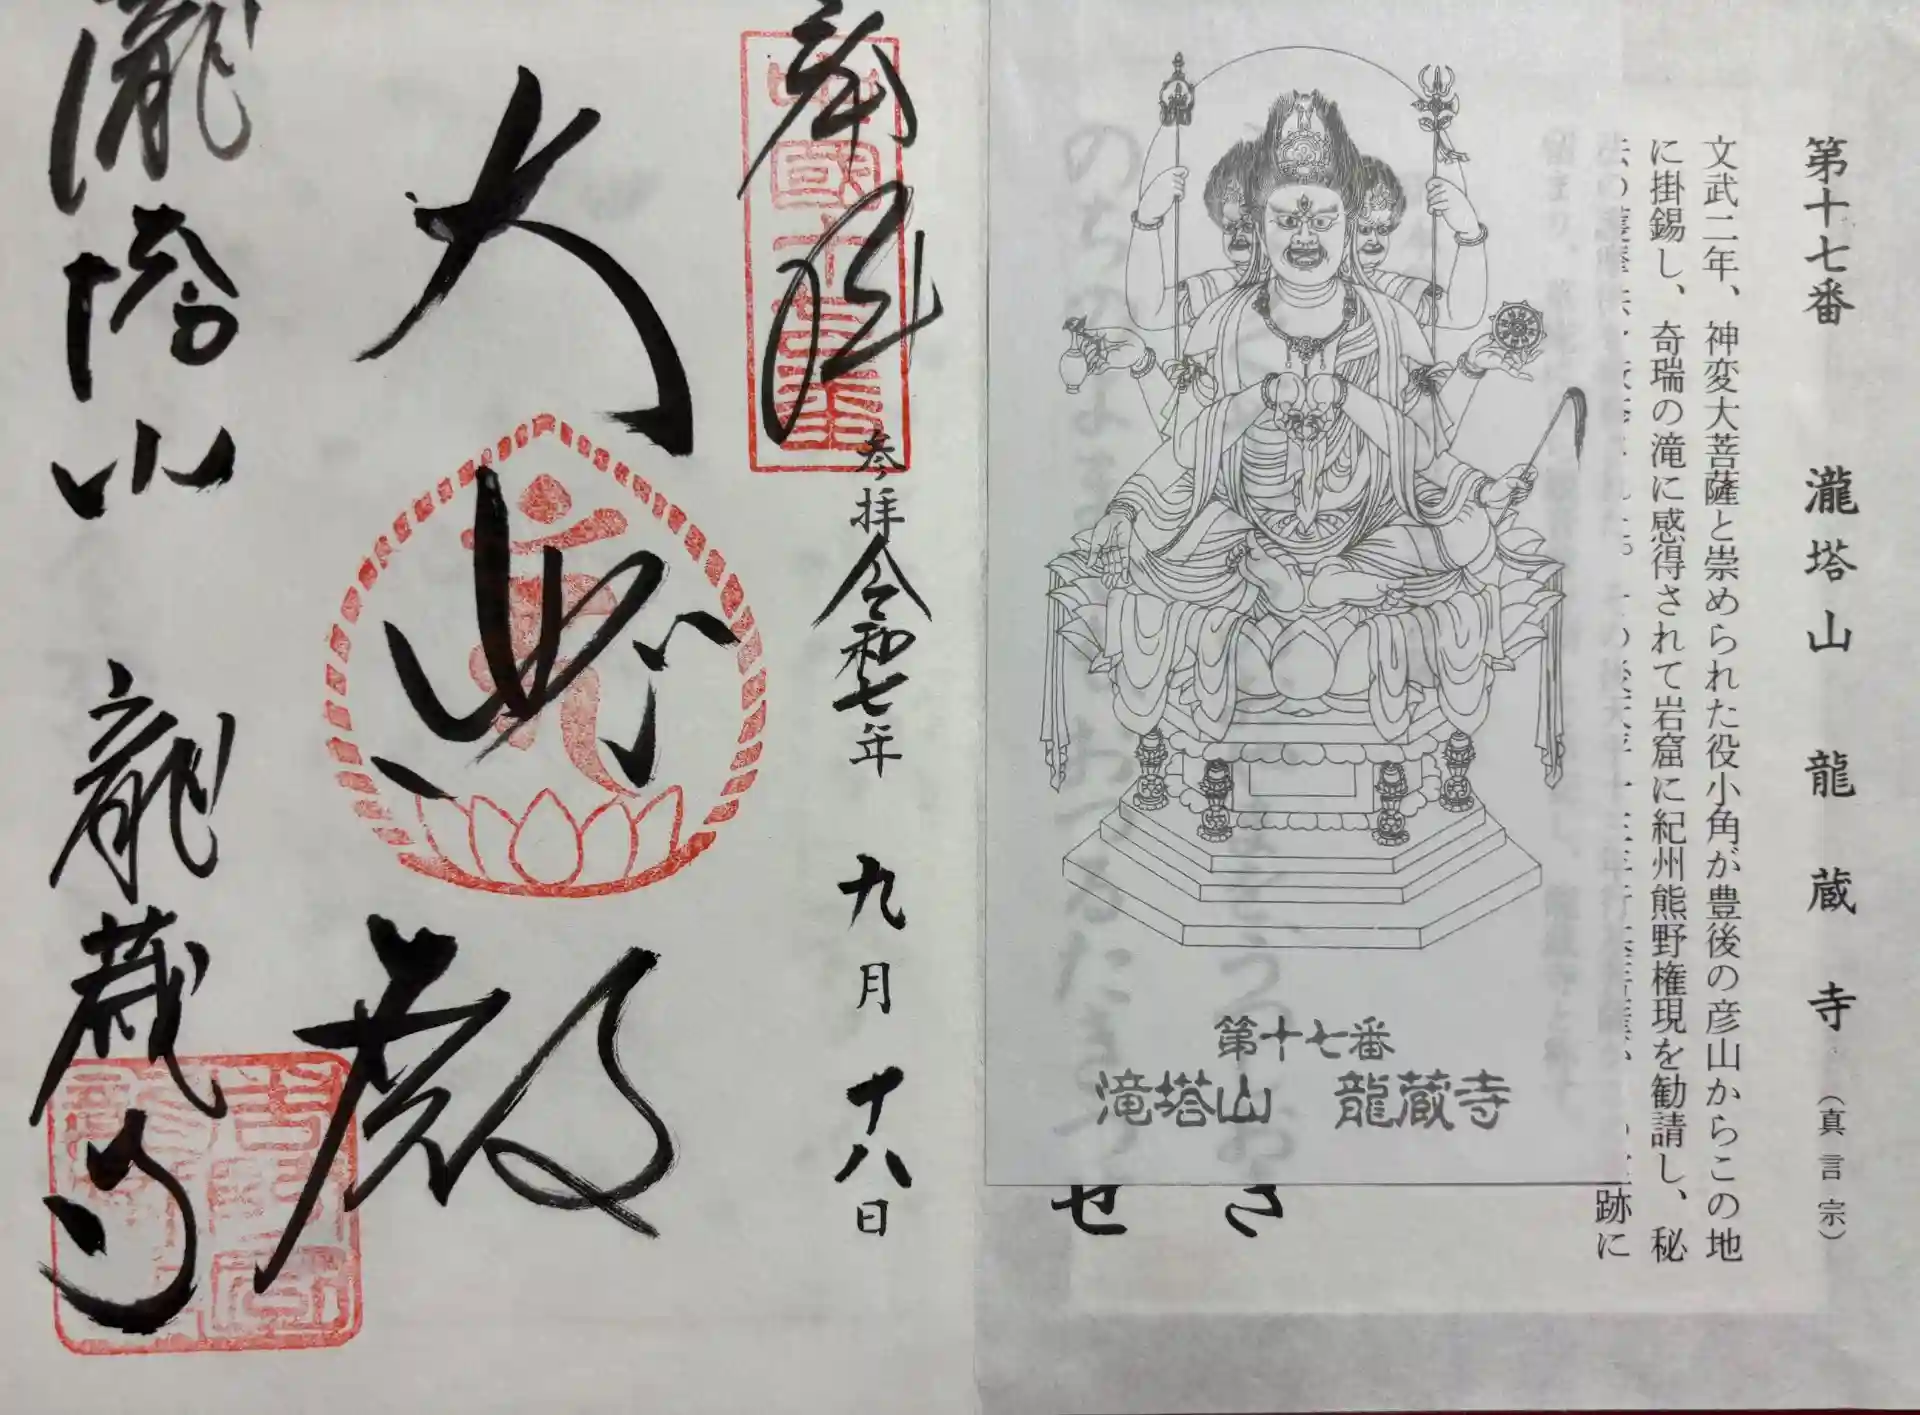 第十七番 瀧塔山 龍蔵寺(真言宗)
文武二年、神変大菩薩と崇められた役小角が豊後の彦山からこの地
に掛錫し、奇瑞の滝に感得されて岩窟に紀州熊野権現を勧請し、秘
跡に
さ
せ
第十七番
滝塔山 龍蔵寺
奉拝
参拝令和七年 九月 十八日
大悲殿
瀧塔山 龍蔵寺